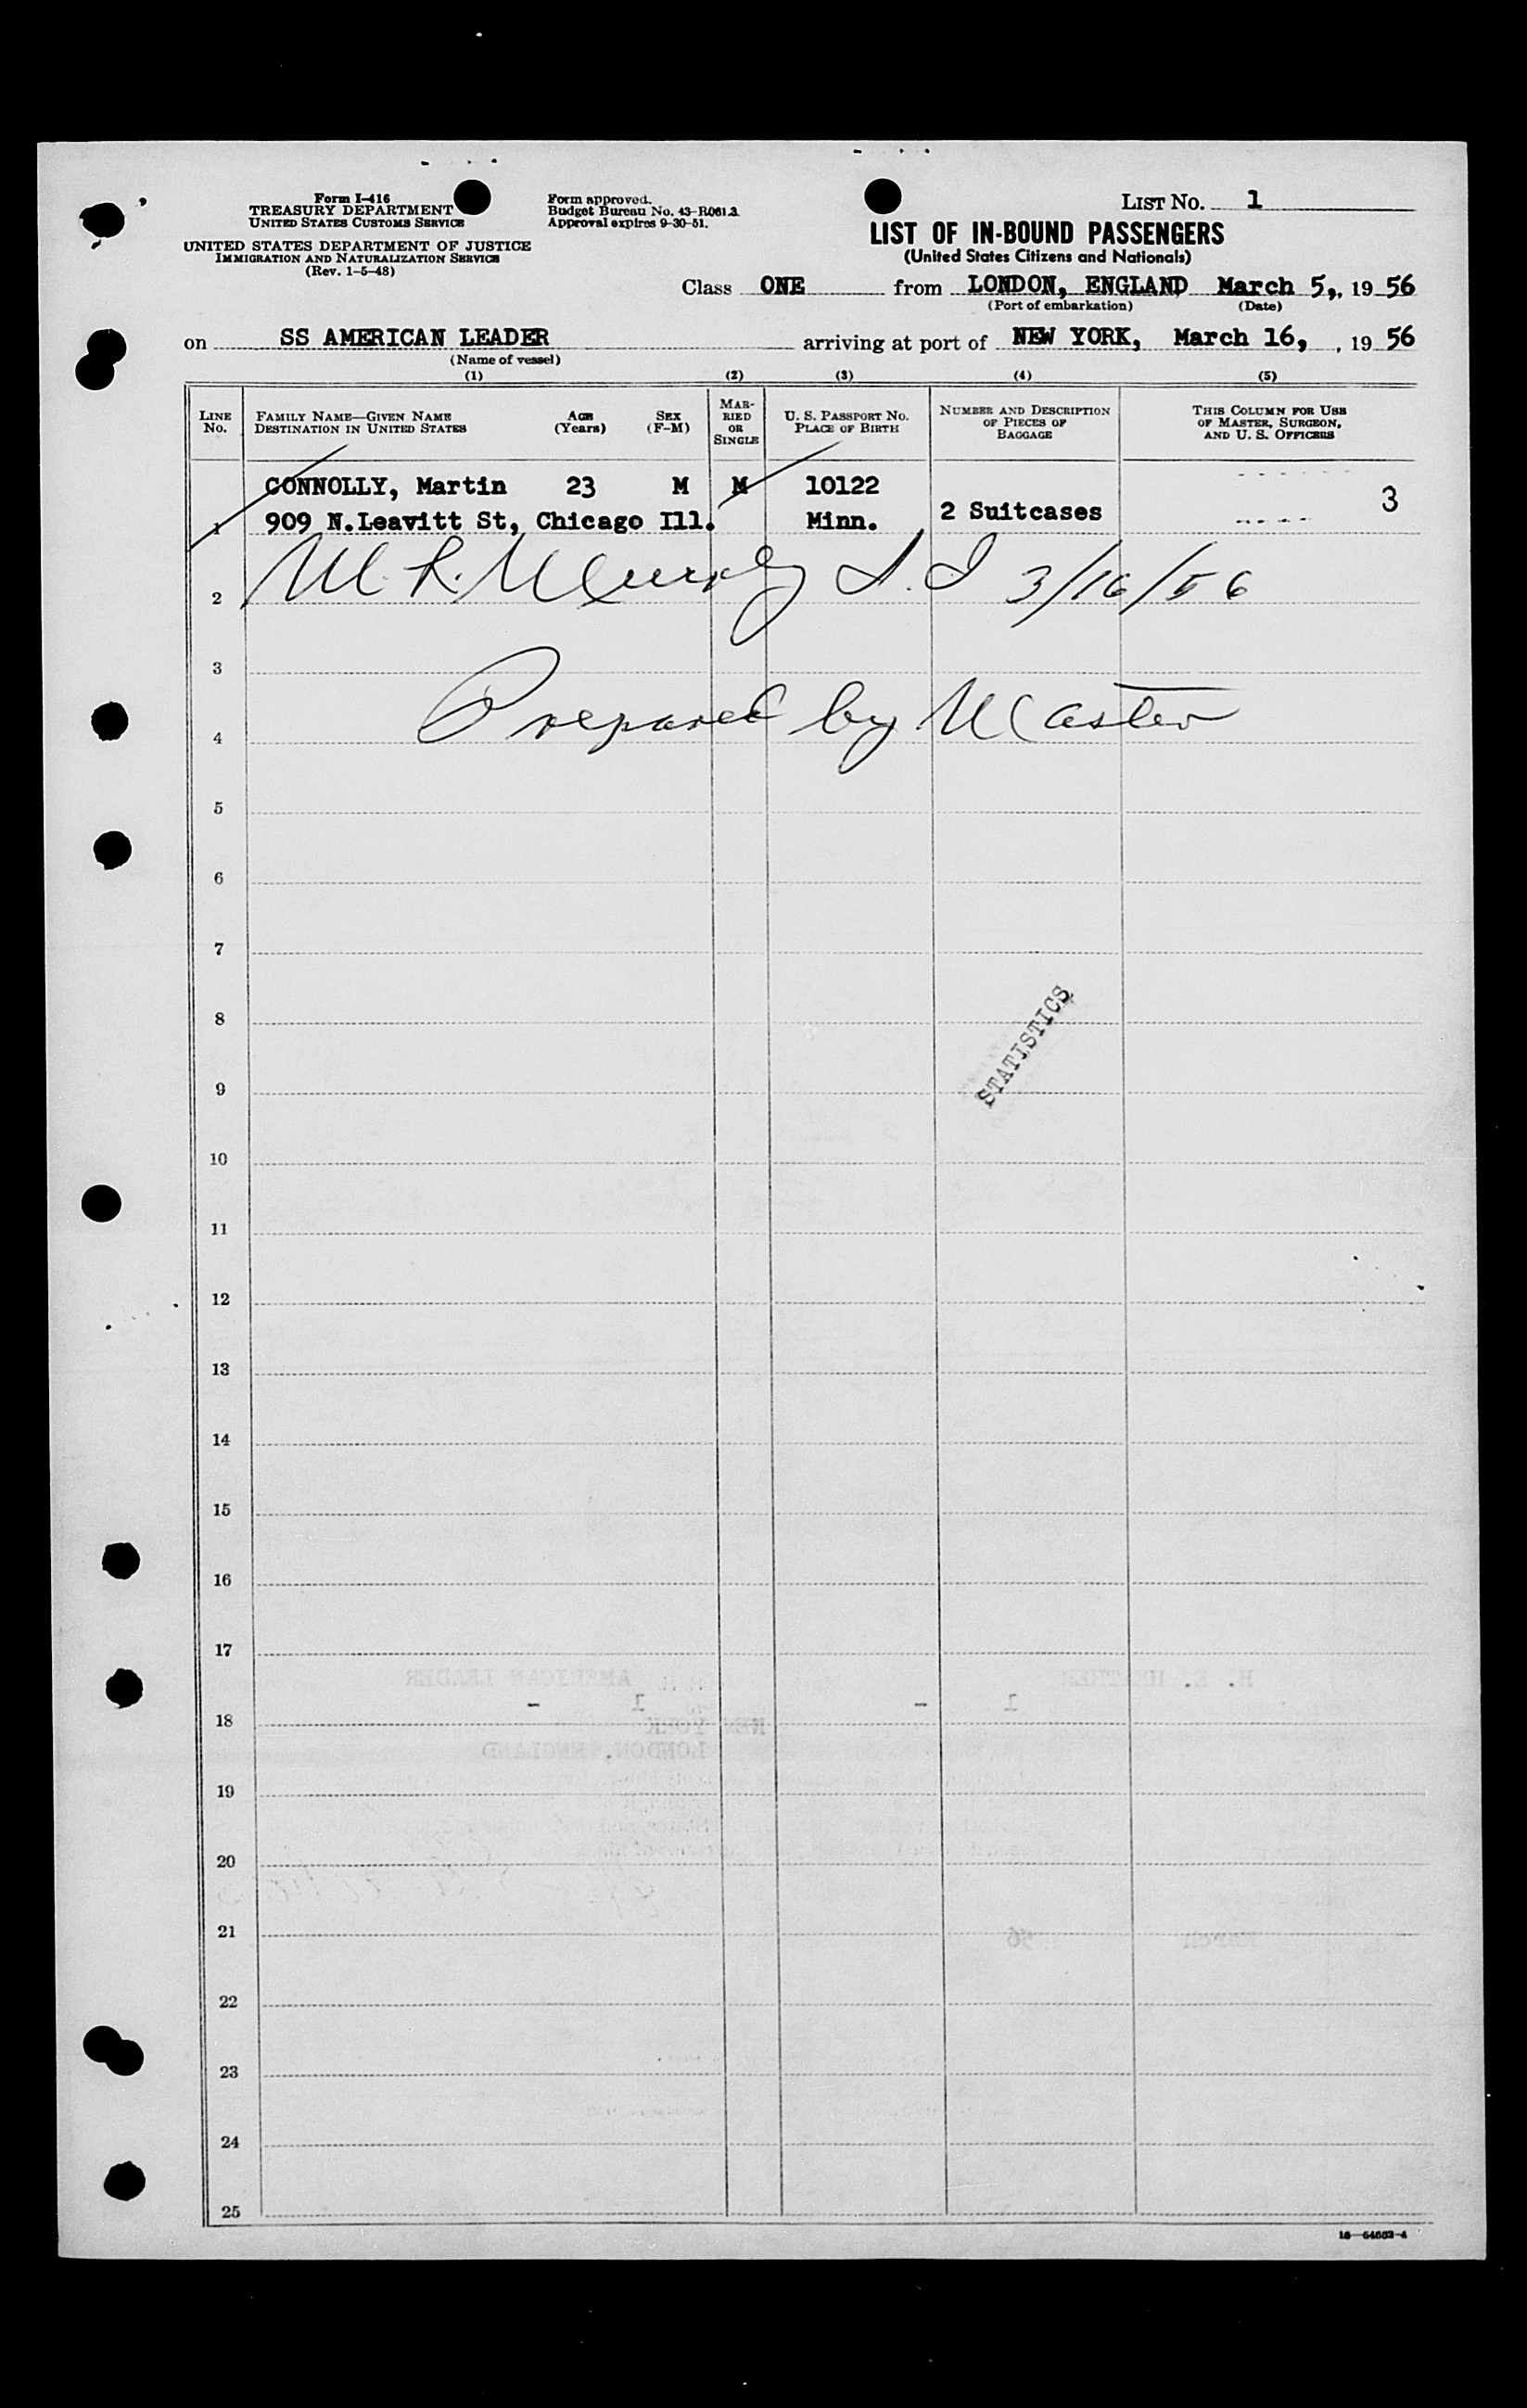 Form I-416
TREASURY DEPARTMENT
UNITED STATES CUSTOMS SERVICE
UNITED STATES DEPARTMENT OF JUSTICE
IMMIGRATION AND NATURALIZATION SERVICE
(Rev. 1-5-48)
Form approved.
Budget Bureau No. 43-R061.3.
Approval expires 9-30-51.
LIST NO. 1
LIST OF IN-BOUND PASSENGERS
(United States Citizens and Nationals)
Class ONE from LONDON, ENGLAND March 5,, 19 56
(Port of embarkation) (Date)
on SS AMERICAN LEADER arriving at port of NEW YORK, March 16, , 19 56
(Name of vessel)
(1) (2) (3) (4) (5)
LINE NO. FAMILY NAME—GIVEN NAME DESTINATION IN UNITED STATES AGE (Years) SEX (F-M) MARRIED OR SINGLE U. S. PASSPORT NO. PLACE OF BIRTH NUMBER AND DESCRIPTION OF PIECES OF BAGGAGE THIS COLUMN FOR USE OF MASTER, SURGEON, AND U. S. OFFICERS
CONNOLLY, Martin 23 M M 10122
1 909 N.Leavitt St, Chicago Ill. Minn. 2 Suitcases 3
2 M. R. Murphy I.I 3/16/56
3
4 Prepared by Master
5
6
7
8
STATISTICS
9
10
11
12
13
14
15
16
17
H. E. AMERICAN LEADER
18 - 1 - 1
NEW YORK
LONDON, ENGLAND
19
20
21
March 56
22
23
24
25